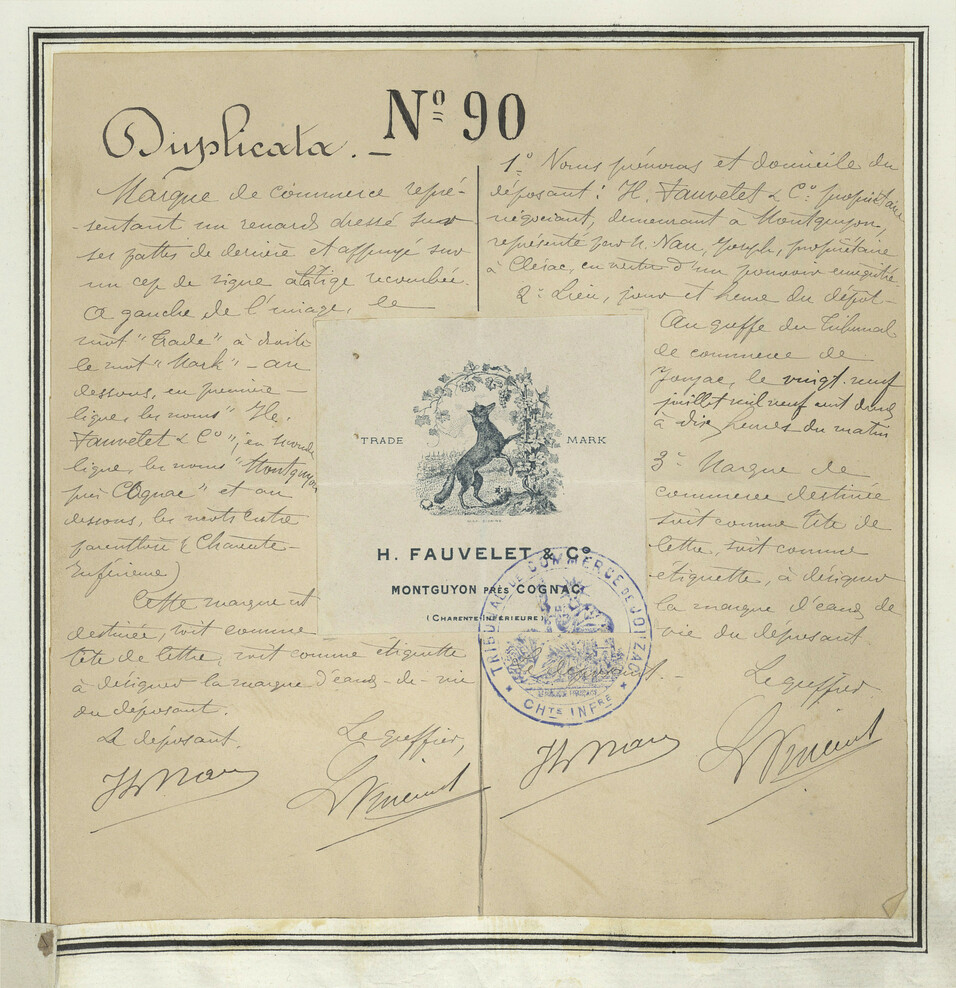 Duplicata. Nº 90
Marque de commerce repré-
-sentant un renard dressé sur
ses pattes de derrière et appuyé sur
un cep de vigne à tige recourbée.
A gauche de l'image, le
mot "Trade" à droite
le mot "Mark" - au
dessous, en première
ligne, les noms "H.
Fauvelet & Cº", en seconde
ligne, les noms "Montguyon
près Cognac" et au
dessous, les mots entre
parenthèse (Charente-
Inférieure)
Cette marque est
destinée, soit comme
tête de lettre, soit comme étiquette
à désigner la marque d'eaux-de-vie
du déposant.
Le déposant,
Le greffier,
1º Noms prénoms et domicile du
déposant: H. Fauvelet & Cº propriétaire
négociant, demeurant à Montguyon,
représenté par M. Nau, Joseph, propriétaire
à Clérac, en vertu d'un pouvoir enregistré.
2º Lieu, jour et heure du dépôt-
Au greffe du Tribunal
de commerce de
Jonzac, le vingt neuf
juillet mil neuf cent
à dix heures du matin
3º Marque de
commerce destinée
soit comme tête de
lettre, soit comme
étiquette, à désigner
la marque d'eaux de
vie du déposant
Le déposant.
Le greffier
TRADE MARK
H. FAUVELET & Cº
MONTGUYON PRÈS COGNAC
(CHARENTE INFÉRIEURE)
TRIBUNAL DE COMMERCE DE JONZAC
CHTE INFRE